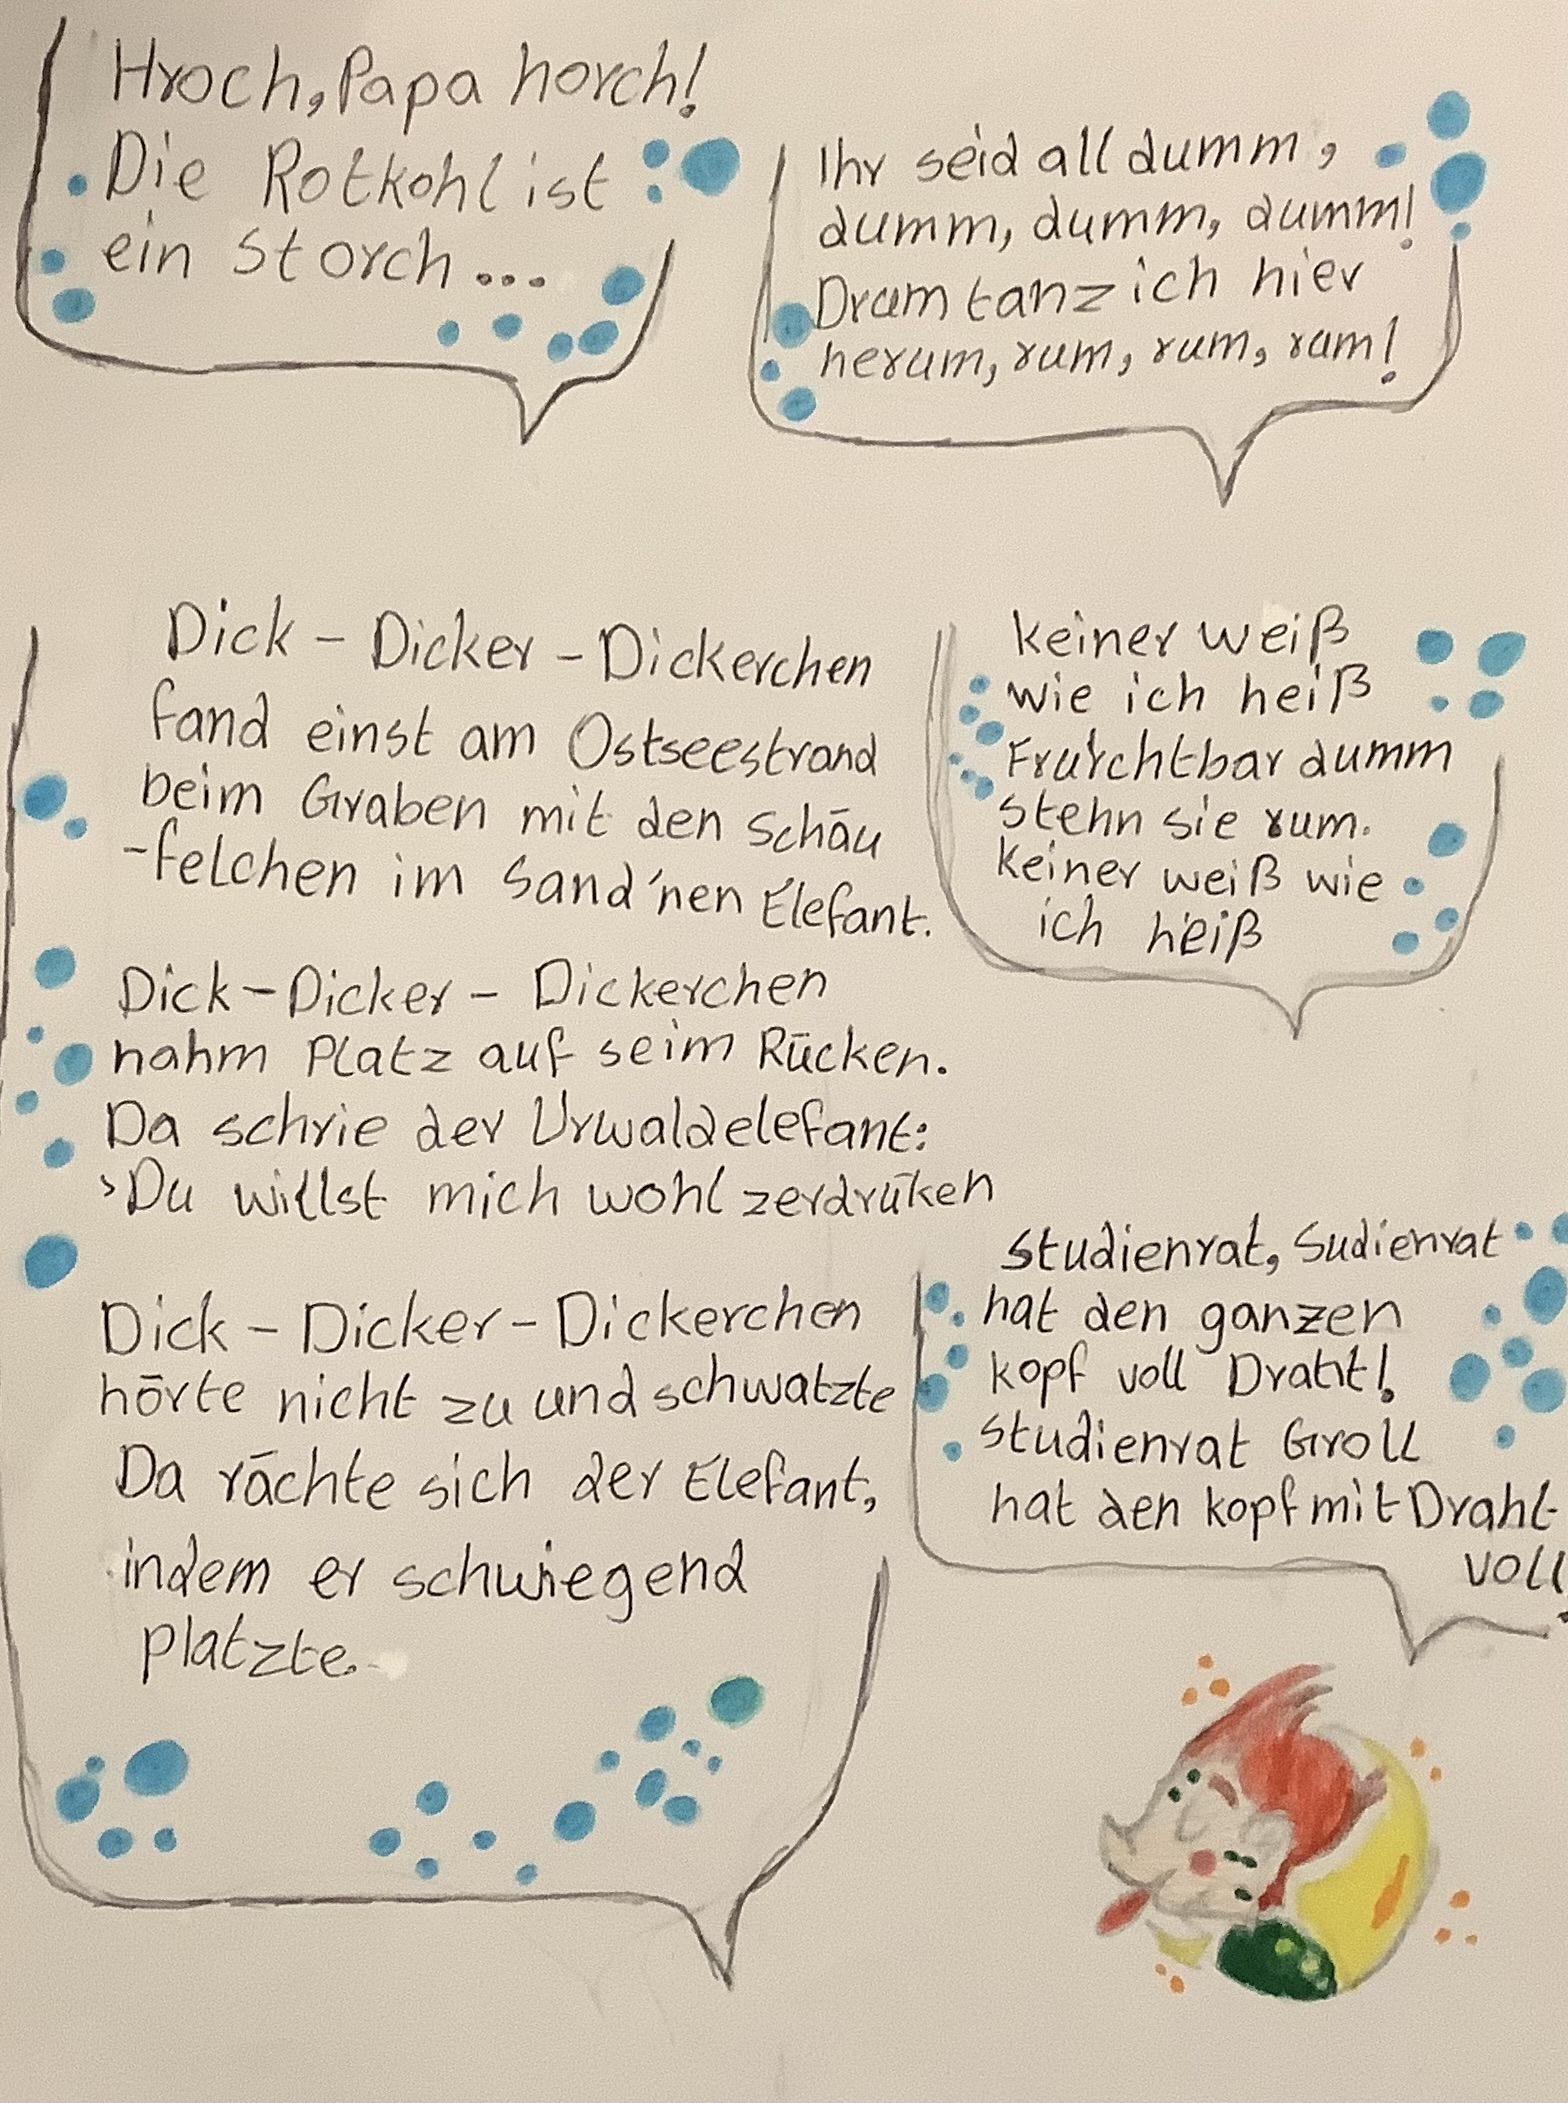 Hroch, Papa horch!
Die Rotkohl ist
ein Storch...
Ihr seid all dumm,
dumm, dumm, dumm!
Drum tanz ich hier
herum, rum, rum, rum!
Dick - Dicker - Dickerchen
fand einst am Ostseestrand
beim Graben mit den Schäu
-felchen im Sand 'nen Elefant.
Dick - Dicker - Dickerchen
nahm Platz auf seim Rücken.
Da schrie der Urwaldelefant:
›Du willst mich wohl zerdrüken
Dick - Dicker - Dickerchen
hörte nicht zu und schwatzte
Da rächte sich der Elefant,
indem er schwiegend
platzte.
keiner weiß
wie ich heiß
Frurchtbar dumm
stehn sie rum.
keiner weiß wie
ich heiß
Studienrat, Sudienrat
hat den ganzen
kopf voll Draht!
Studienrat Groll
hat den kopf mit Draht
voll.